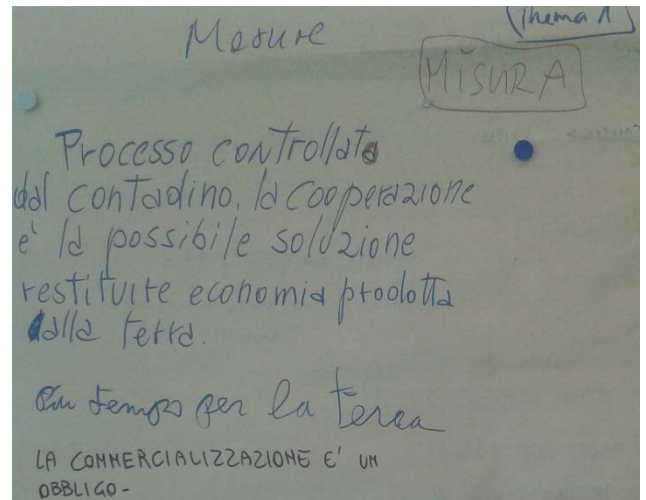 Thema 1
Mesure
MISURA
Processo controllato
dal contadino, la cooperazione
e' la possibile soluzione
restituire economia prodotta
dalla terra.
tempo per la terra
LA COMMERCIALIZZAZIONE E' UN
OBBLIGO-